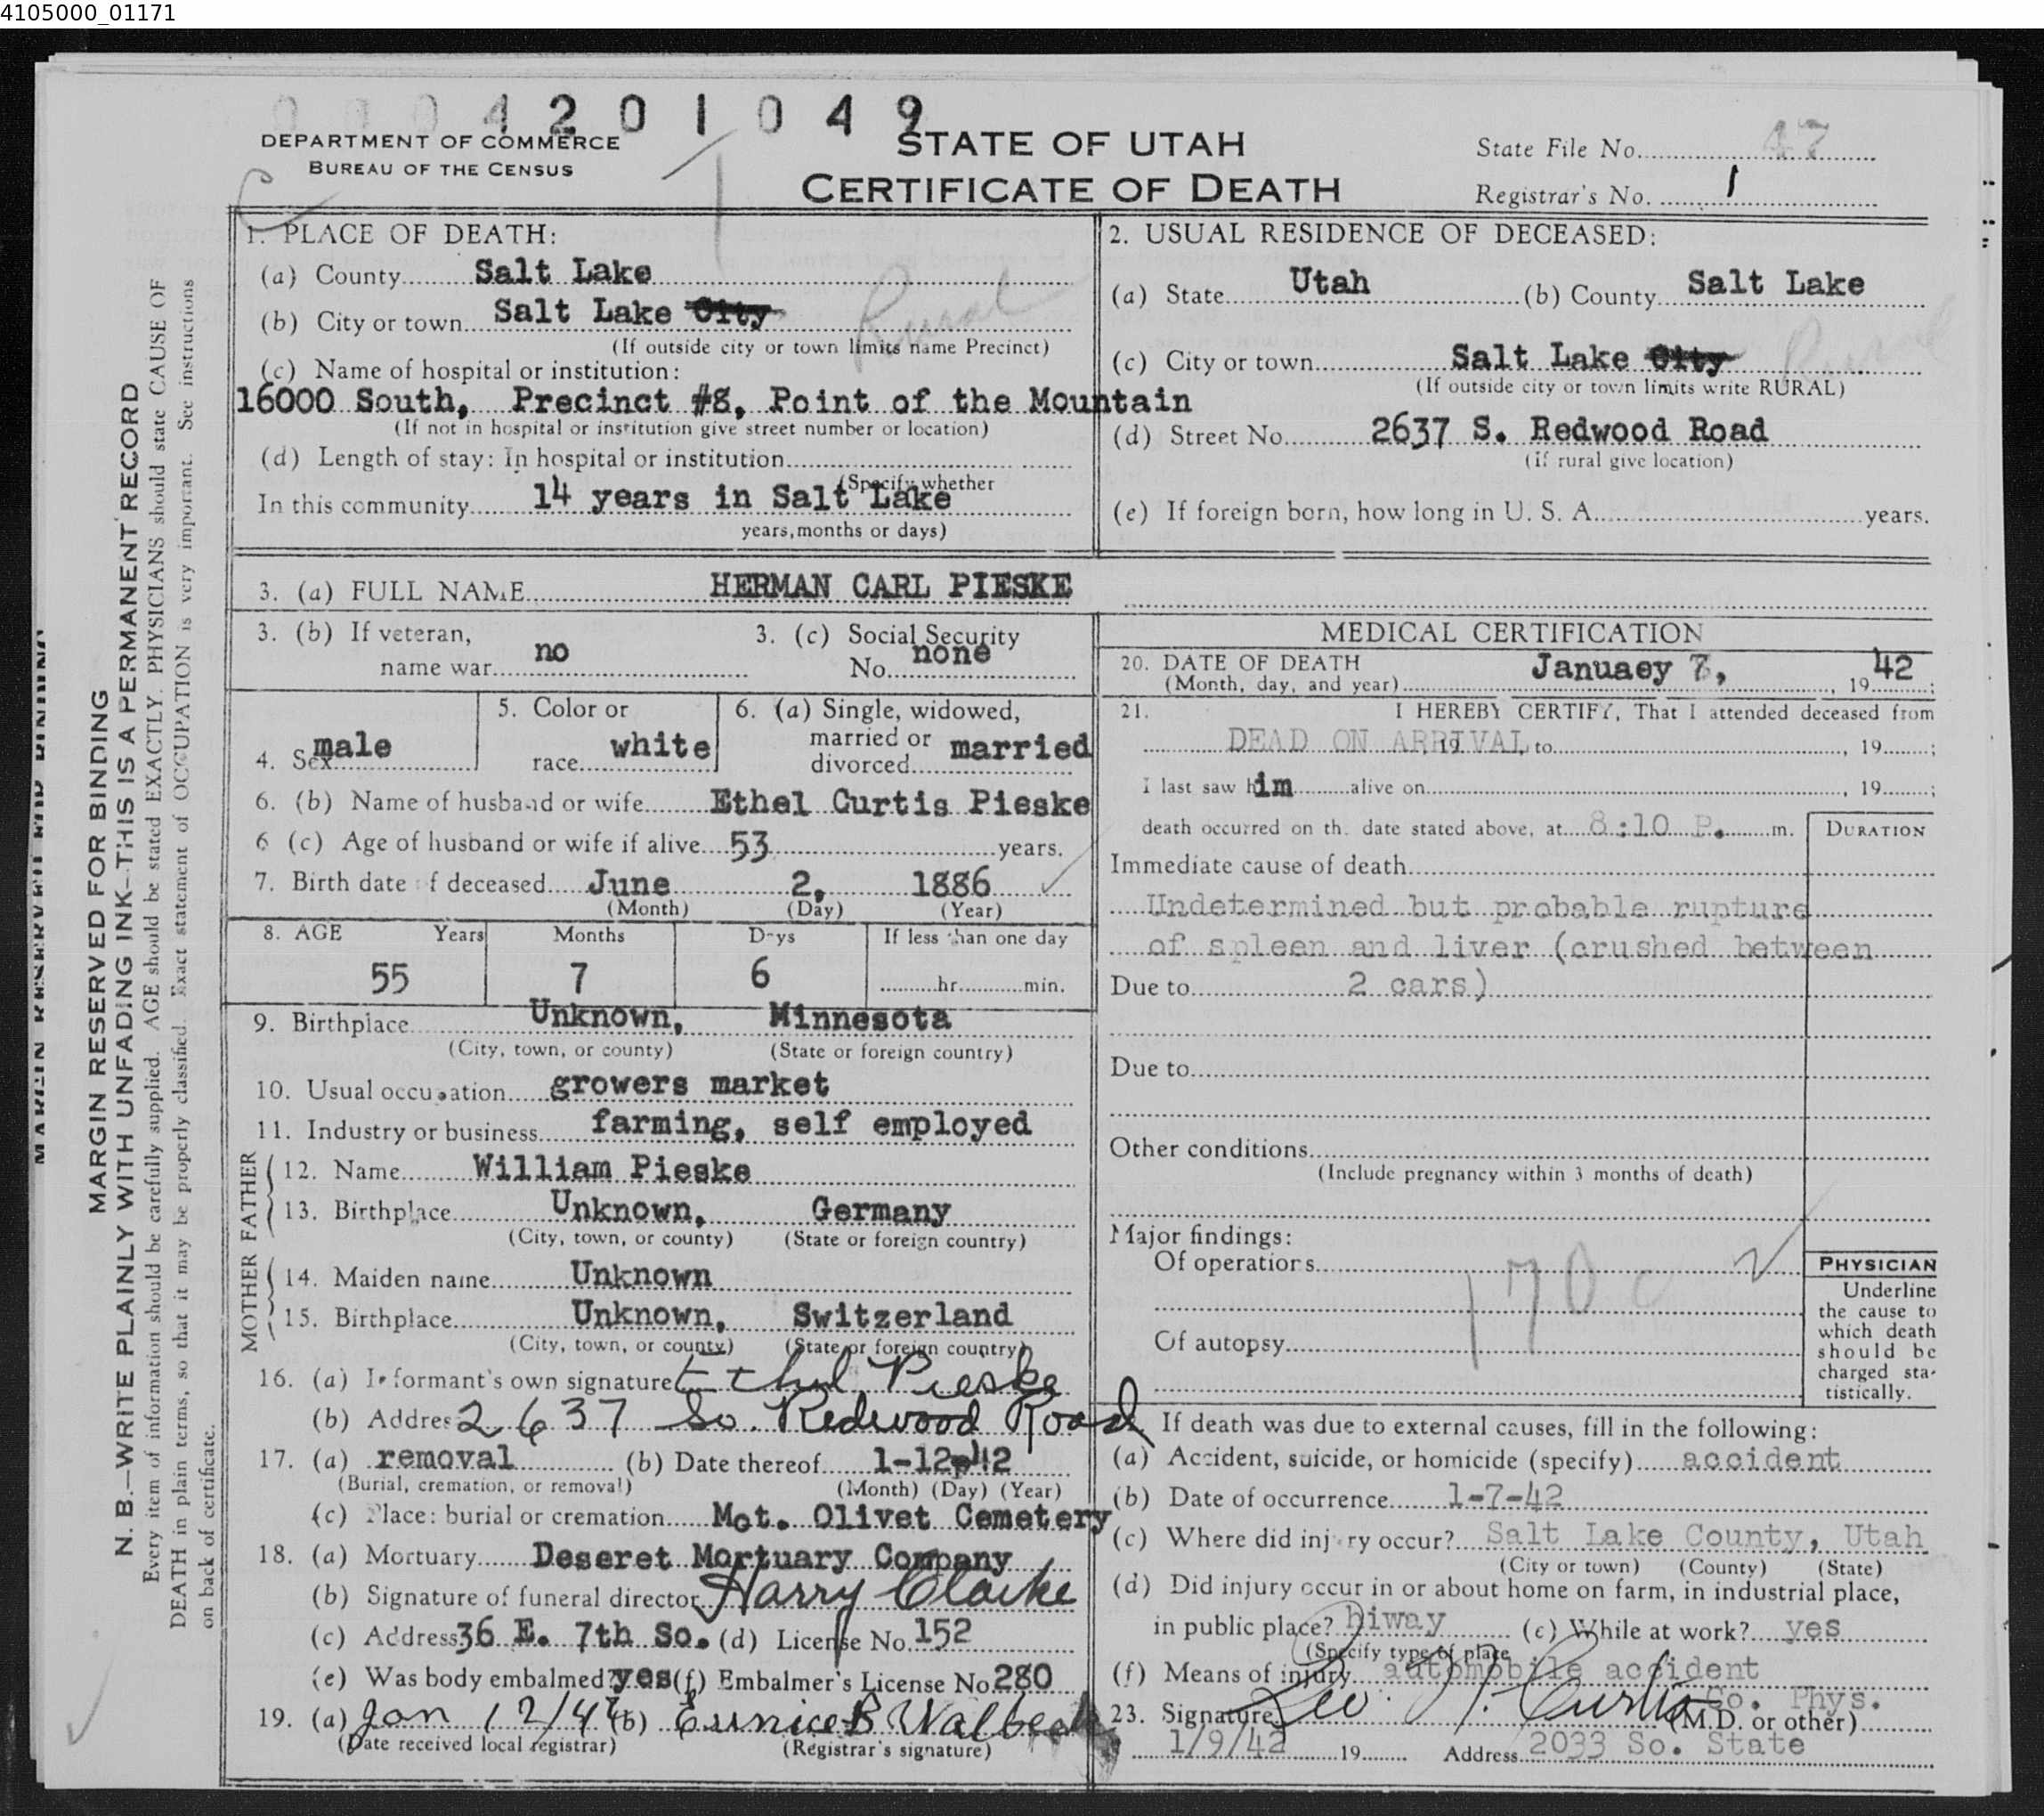 4105000_01171
0004201049
DEPARTMENT OF COMMERCE
BUREAU OF THE CENSUS
STATE OF UTAH
CERTIFICATE OF DEATH
State File No. 47
Registrar's No. 1
MARGIN RESERVED FOR BINDING
N. B.—WRITE PLAINLY WITH UNFADING INK—THIS IS A PERMANENT RECORD
Every item of information should be carefully supplied. AGE should be stated EXACTLY. PHYSICIANS should state CAUSE OF
DEATH in plain terms, so that it may be properly classified. Exact statement of OCCUPATION is very important. See instructions
on back of certificate.
1. PLACE OF DEATH:
(a) County Salt Lake
(b) City or town Salt Lake City Rural
(If outside city or town limits name Precinct)
(c) Name of hospital or institution:
16000 South, Precinct #8, Point of the Mountain
(If not in hospital or institution give street number or location)
(d) Length of stay: In hospital or institution
(Specify whether
In this community 14 years in Salt Lake
years, months or days)
2. USUAL RESIDENCE OF DECEASED:
(a) State Utah (b) County Salt Lake
(c) City or town Salt Lake City Rural
(If outside city or town limits write RURAL)
(d) Street No. 2637 S. Redwood Road
(if rural give location)
(e) If foreign born, how long in U. S. A. years.
3. (a) FULL NAME HERMAN CARL PIESKE
3. (b) If veteran,
name war no
3. (c) Social Security
No. none
4. Sex male
5. Color or
race white
6. (a) Single, widowed,
married or
divorced married
6. (b) Name of husband or wife Ethel Curtis Pieske
6 (c) Age of husband or wife if alive 53 years.
7. Birth date of deceased June 2, 1886
(Month) (Day) (Year)
8. AGE Years Months Days If less than one day
55 7 6 hr. min.
9. Birthplace Unknown, Minnesota
(City, town, or county) (State or foreign country)
10. Usual occupation growers market
11. Industry or business farming, self employed
FATHER
12. Name William Pieske
13. Birthplace Unknown, Germany
(City, town, or county) (State or foreign country)
MOTHER
14. Maiden name Unknown
15. Birthplace Unknown, Switzerland
(City, town, or county) (State or foreign country)
16. (a) Informant's own signature Ethel Pieske
(b) Address 2637 So. Redwood Road
17. (a) removal (b) Date thereof 1-12-42
(Burial, cremation, or removal) (Month) (Day) (Year)
(c) Place: burial or cremation Mot. Olivet Cemetery
18. (a) Mortuary Deseret Mortuary Company
(b) Signature of funeral director Harry Clarke
(c) Address 36 E. 7th So. (d) License No. 152
(e) Was body embalmed? yes (f) Embalmer's License No. 280
19. (a) Jan 12/42 (b) Eunice B Walbeck
(Date received local registrar) (Registrar's signature)
MEDICAL CERTIFICATION
20. DATE OF DEATH
(Month, day, and year) Januaey 7, 1942;
21. I HEREBY CERTIFY, That I attended deceased from
DEAD ON ARRIVAL, 19 to , 19 ;
I last saw him alive on , 19 ;
death occurred on the date stated above, at 8:10 P. m.
DURATION
Immediate cause of death
Undetermined but probable rupture
of spleen and liver (crushed between
Due to 2 cars)
Due to
Other conditions
(Include pregnancy within 3 months of death)
Major findings:
Of operations
170c
Of autopsy
PHYSICIAN
Underline
the cause to
which death
should be
charged sta-
tistically.
If death was due to external causes, fill in the following:
(a) Accident, suicide, or homicide (specify) accident
(b) Date of occurrence 1-7-42
(c) Where did injury occur? Salt Lake County, Utah
(City or town) (County) (State)
(d) Did injury occur in or about home on farm, in industrial place,
in public place? hiway (e) While at work? yes
(Specify type of place
(f) Means of injury automobile accident
Co. Phys.
23. Signature Leo. N. Curtis (M.D. or other)
1/9/42 19 Address 2033 So. State